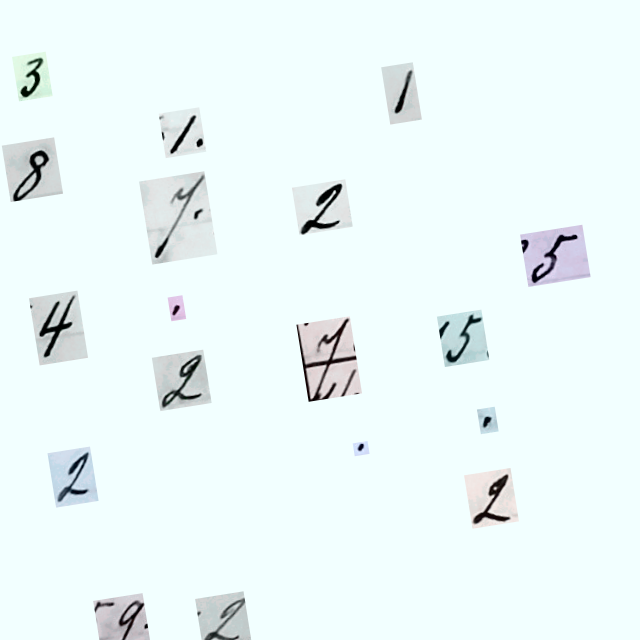 3
1
1.
8
7.
2
5
4
.
7
5
2
.
.
2
2
9.
2